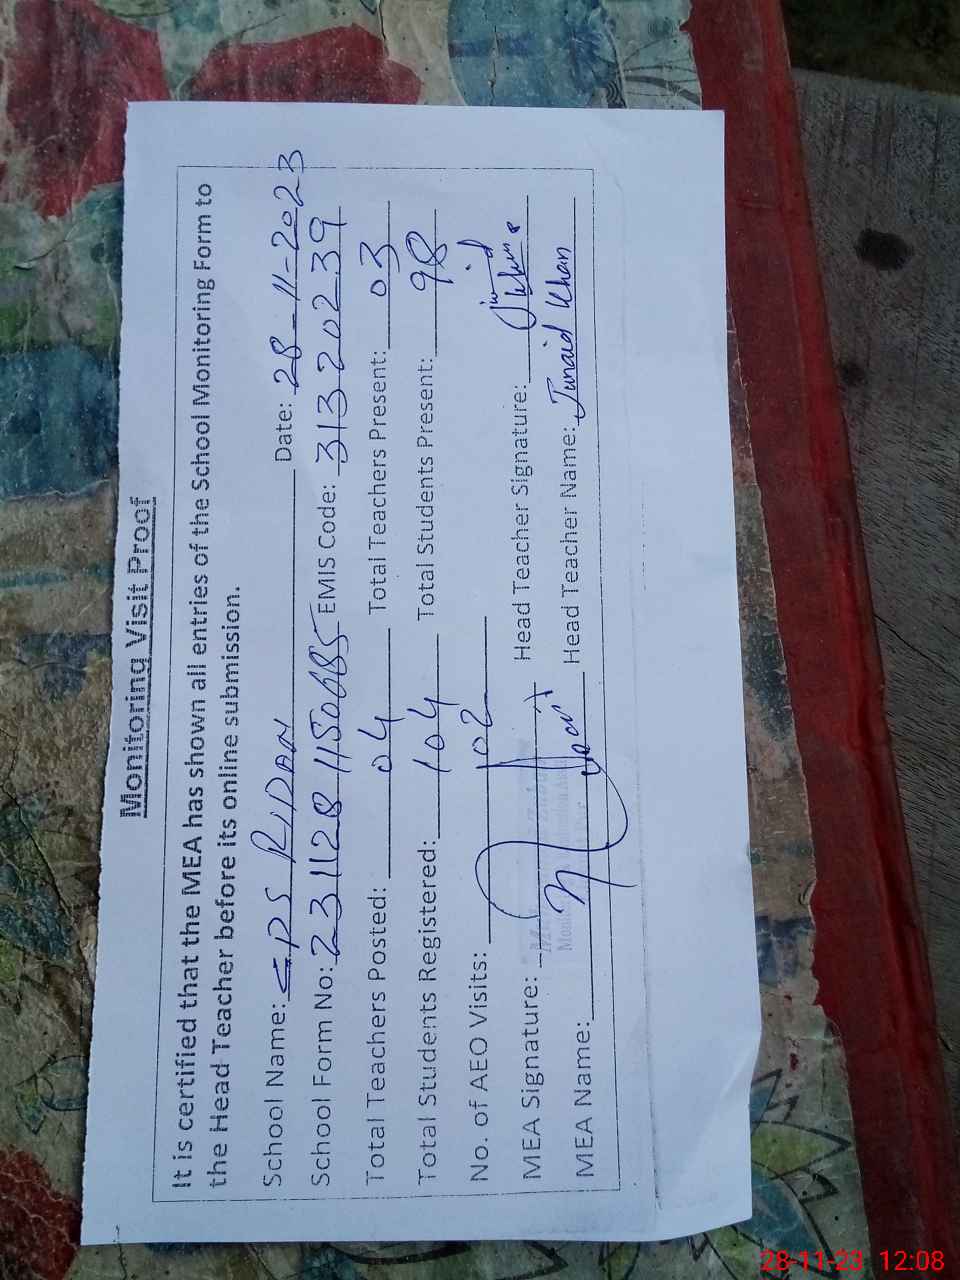 Monitoring Visit Proof
It is certified that the MEA has shown all entries of the School Monitoring Form to
the Head Teacher before its online submission.
School Name: GPS RIDAN Date: 28-11-2023
School Form No: 231128 1150685 EMIS Code: 31320239
Total Teachers Posted: 04 Total Teachers Present: 03
Total Students Registered: 104 Total Students Present: 98
No. of AEO Visits: 02
MEA Signature: Head Teacher Signature: Junaid Khan
MEA Name: Head Teacher Name: Junaid Khan
28-11-23 12:08